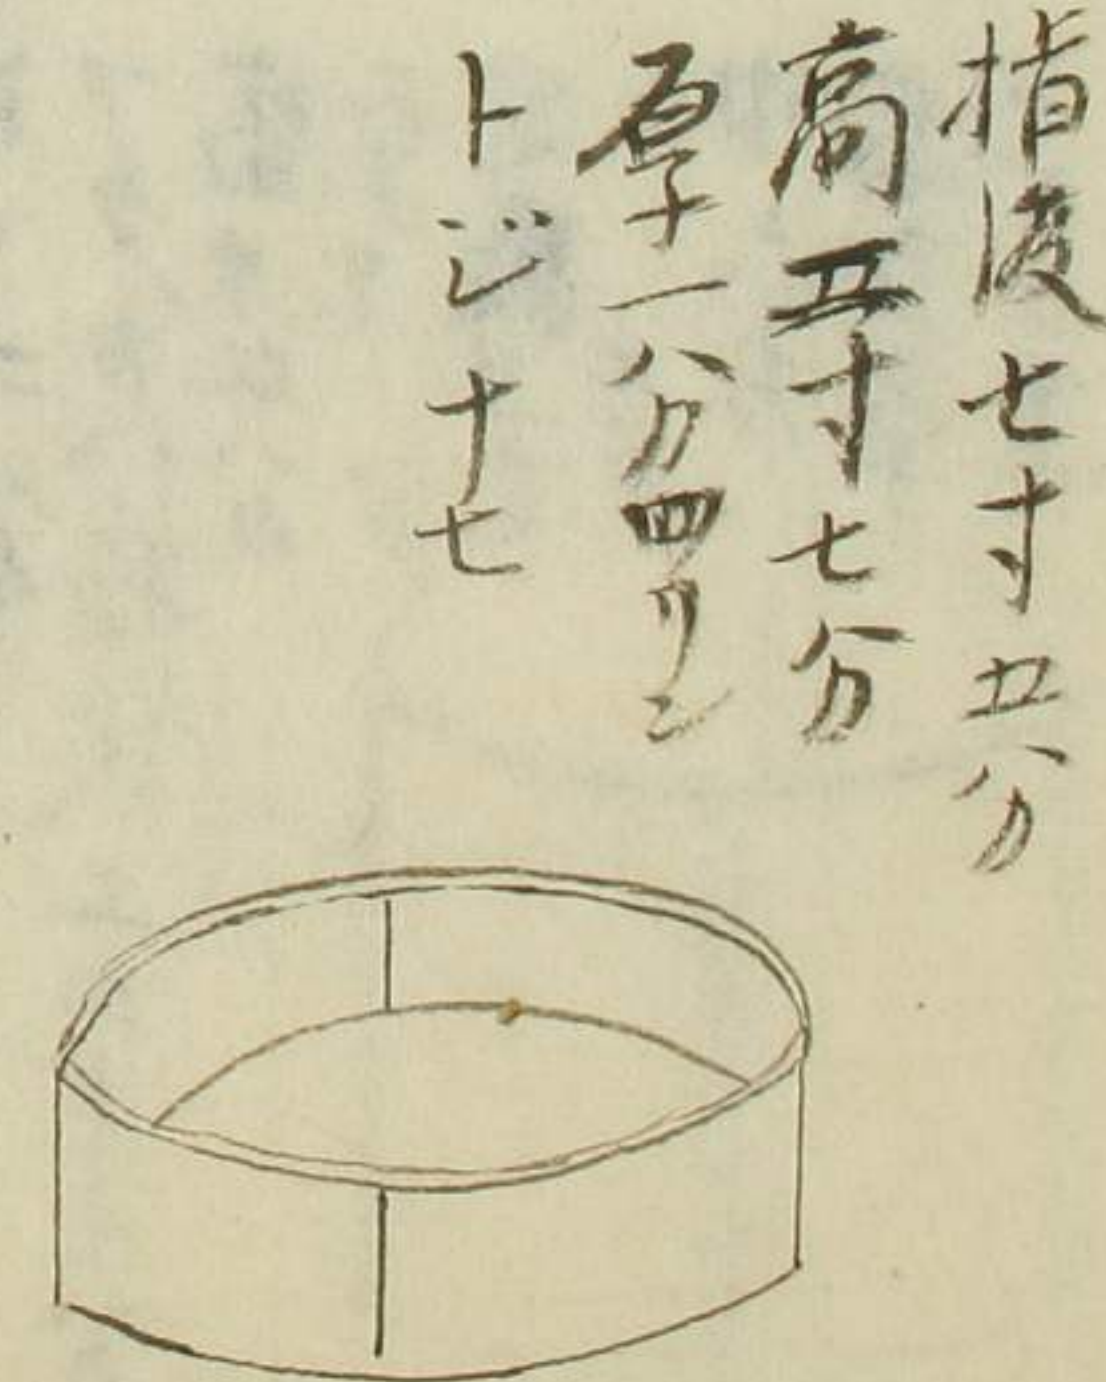 指渡七寸五分
高五寸七分
厚一分四リン
トジ十七